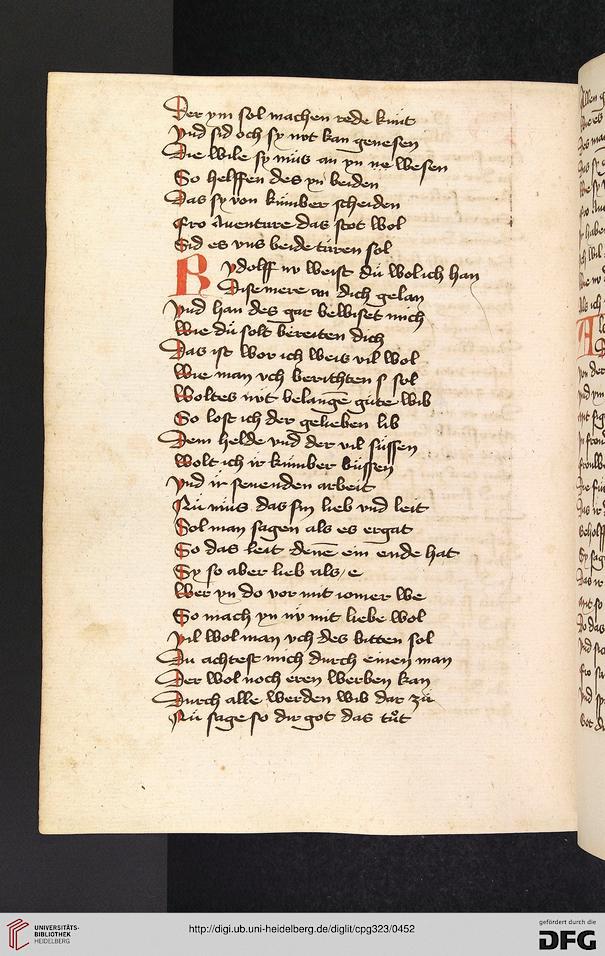 Der ym sol machen rede kunt
Vnd sid och sy nvt kan genesen
Die wile sy mus an yn ne wesen
So helffen des yn beiden
Das sy von kumber scheiden
Fro Auenture das stot wol
Sid es vns beide turen sol
Rvdolff nv weist du wol ich han
Dise mere an dich gelan
Vnd han des gar bewiset mich
Wie du solt bereiten dich
Das ist wor ich weis vil wol
Wie man vch berichten s sol
Woltes nvt belangē gute wib
So lost ich der gelieben lib
Dem helde vnd der vil sussen
Wolt ich ir kumber bussen
Vnd ir senenden arbeit
Nu mus das sin lieb vnd leit
Sol man sagen als es ergat
So das leit denē ein ende hat
Sy so aber lieb als e
Wer yn do vor mit iomer we
So mach yn nv mit liebe wol
Vil wol man vch des bitten sol
Du achtest mich durch einen man
Der wol noch eren werben kan
Durch alle werden wib dar zu
Nu sage so dir got das tut
UNIVERSITÄTS-
BIBLIOTHEK
HEIDELBERG
http://digi.ub.uni-heidelberg.de/diglit/cpg323/0452
gefördert durch die
DFG